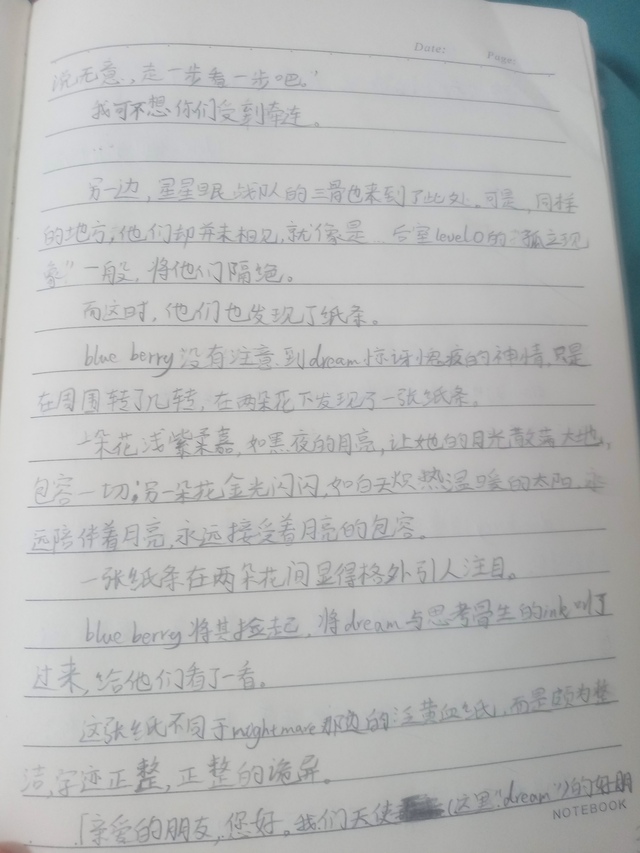 Date: Page:
说无意，走一步看一步吧。”
我可不想你们受到牵连。
...
另一边，星星眠战队的三骨也来到了此处。可是，同样
的地方，他们却并未相见，就像是...后室level0的“孤立现
象”一般，将他们隔绝。
而这时，他们也发现了纸条。
blue berry没有注意到dream惊讶的神情，只是
在周围转了几转，在两朵花下发现了一张纸条。
一朵花浅紫柔嘉，如黑夜的月亮，让她的月光散落大地，
包容一切；另一朵花金光闪闪，如白天炽热温暖的太阳，永
远陪伴着月亮，永远接受着月亮的包容。
一张纸条在两朵花间显得格外引人注目。
blue berry将其捡起，将dream与思考骨生的ink叫了
过来，给他们看了一看。
这张纸不同于nightmare那边的泛黄血纸，而是颇为整
洁，字迹正整，正整的诡异。
「亲爱的朋友，您好。我们天使（这里“dream”）的好朋
NOTEBOOK